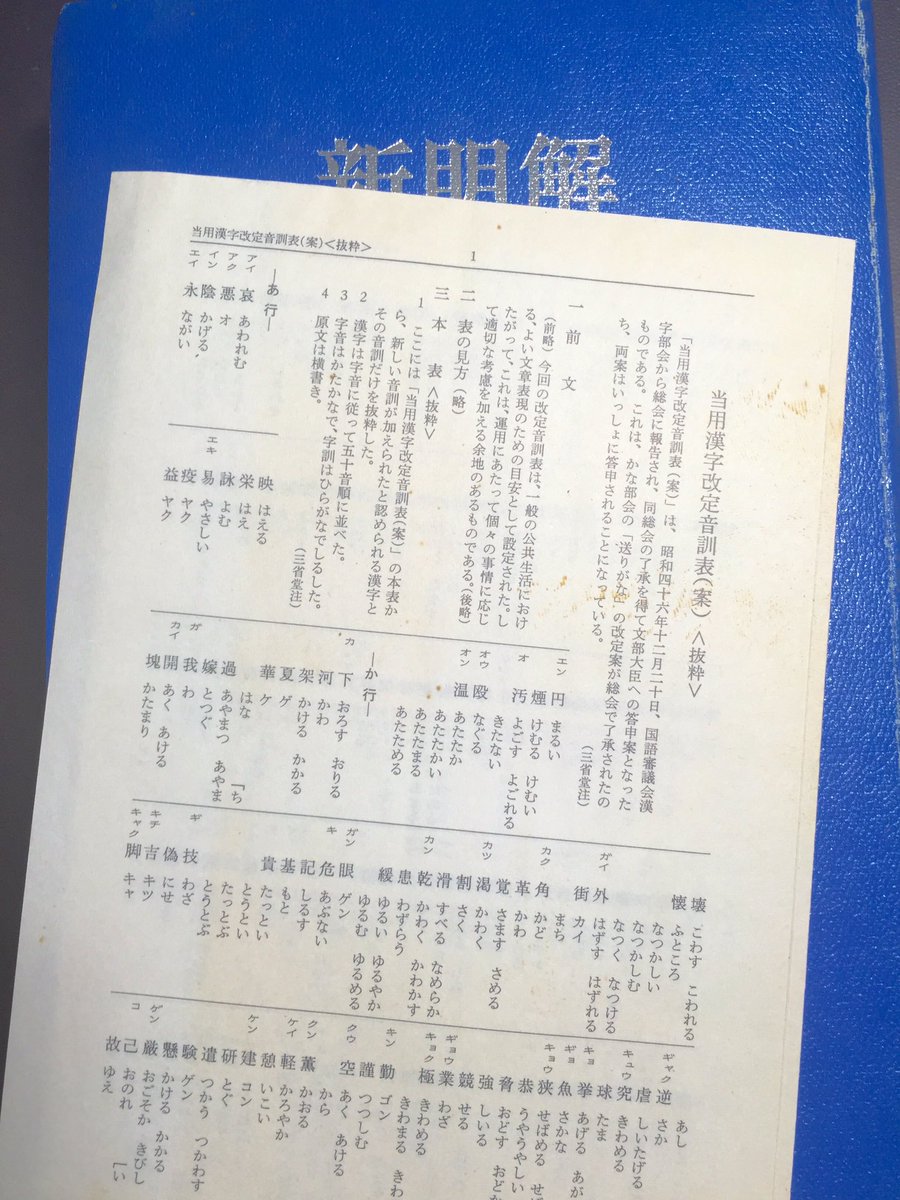 新明解
当用漢字改定音訓表(案)<抜粋>
1
当用漢字改定音訓表(案) <抜粋>
「当用漢字改定音訓表(案)」は、昭和四十六年十二月二十日、国語審議会漢
字部会から総会に報告され、同総会の了承を得て文部大臣への答申案となった
ものである。これは、かな部会の「送りがな」の改定案が総会で了承されたの
ち、両案はいっしょに答申されることになっている。
(三省堂注)
一 前 文
(前略) 今回の改定音訓表は、一般の公共生活におけ
る、よい文章表現のための目安として設定された。し
たがって、これは、運用にあたって個々の事情に応じ
て適切な考慮を加える余地のあるものである。(後略)
二 表の見方 (略)
三 本 表 <抜粋>
1 ここには「当用漢字改定音訓表(案)」の本表か
ら、新しい音訓が加えられたと認められる漢字と
その音訓だけを抜粋した。
2 漢字は字音に従って五十音順に並べた。
3 字音はかたかなで、字訓はひらがなでしるした。
4 原文は横書き。
(三省堂注)
―あ 行―
アイ 哀 あわれむ
アク 悪 オ
イン 陰 かげる
エイ 永 ながい
映 はえる
栄 はえ
詠 よむ
エキ 易 やさしい
疫 ヤク
益 ヤク
エン 円 まるい
煙 けむる けむい
オ 汚 よごす よごれる
きたない
オウ 殴 なぐる
オン 温 あたたか
あたたかい
あたたまる
あたためる
―か 行―
カ 下 おろす おりる
河 かわ
架 かける かかる
夏 ゲ
華 ケ
はな
過 あやまつ あやま
「ち
嫁 とつぐ
ガ 我 わ
カイ 開 あく あける
塊 かたまり
壊 こわす こわれる
懐 ふところ
なつかしい
なつかしむ
なつく なつける
ガイ 外 はずす はずれる
街 カイ
まち
カク 角 かど
革 かわ
覚 さます さめる
カツ 渇 かわく
割 さく
滑 すべる なめらか
カン 乾 かわく かわかす
患 わずらう
緩 ゆるい ゆるやか
ゆるむ ゆるめる
ガン 眼 ゲン
キ 危 あぶない
記 しるす
基 もと
貴 たっとい
とうとい
たっとぶ
とうとぶ
ギ 技 わざ
偽 にせ
キチ 吉 キツ
キャク 脚 キャ
あし
ギャク 逆 さか
虐 しいたげる
キュウ 究 きわめる
球 たま
キョ 挙 あげる あが
ギョ 魚 さかな
キョウ 狭 せばめる せば
恭 うやうやしい
脅 おどす おどな
強 しいる
競 せる
ギョウ 業 わざ
キョク 極 きわめる
きわまる きわ
キン 勤 ゴン
謹 つつしむ
クウ 空 あく あける
から
クン 薫 かおる
ケイ 軽 かろやか
憩 いこい
ケン 建 コン
研 とぐ
遣 つかう つかわす
験 ゲン
懸 かける かかる
ゲン 厳 おごそか きびし
「い
コ 己 おのれ
故 ゆえ